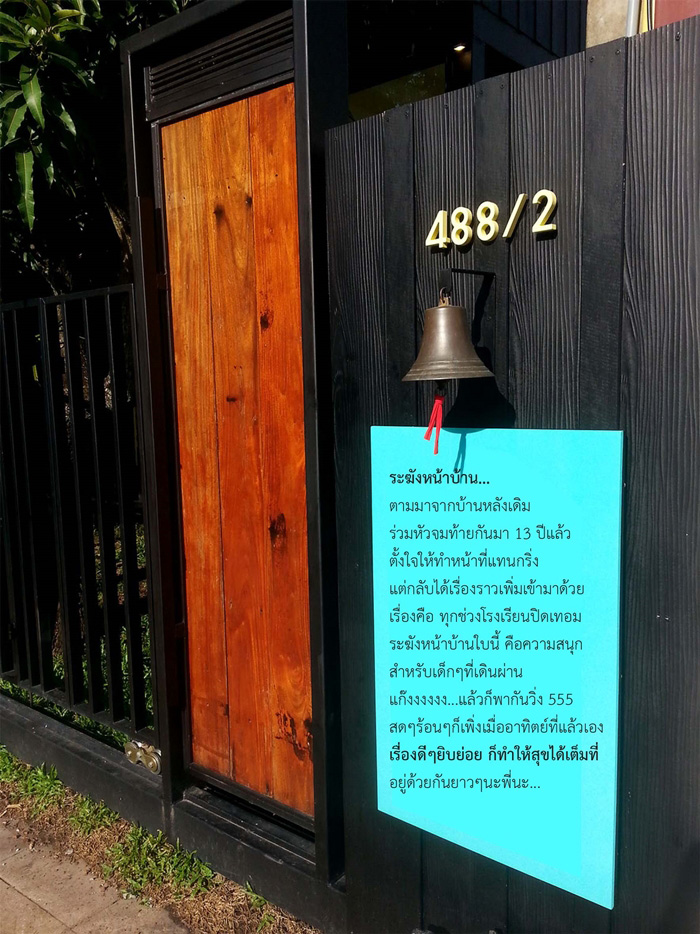 488/2
ระฆังหน้าบ้าน...
ตามมาจากบ้านหลังเดิม
ร่วมหัวจมท้ายกันมา 13 ปีแล้ว
ตั้งใจให้ทำหน้าที่แทนกริ่ง
แต่กลับได้เรื่องราวเพิ่มเข้ามาด้วย
เรื่องคือ ทุกช่วงโรงเรียนปิดเทอม
ระฆังหน้าบ้านใบนี้ คือความสนุก
สำหรับเด็กๆที่เดินผ่าน
แก๊งงงงงง...แล้วก็พากันวิ่ง 555
สดๆร้อนๆก็เพิ่งเมื่ออาทิตย์ที่แล้วเอง
เรื่องดีๆยิบย่อย ก็ทำให้สุขได้เต็มที่
อยู่ด้วยกันยาวๆนะพี่นะ...